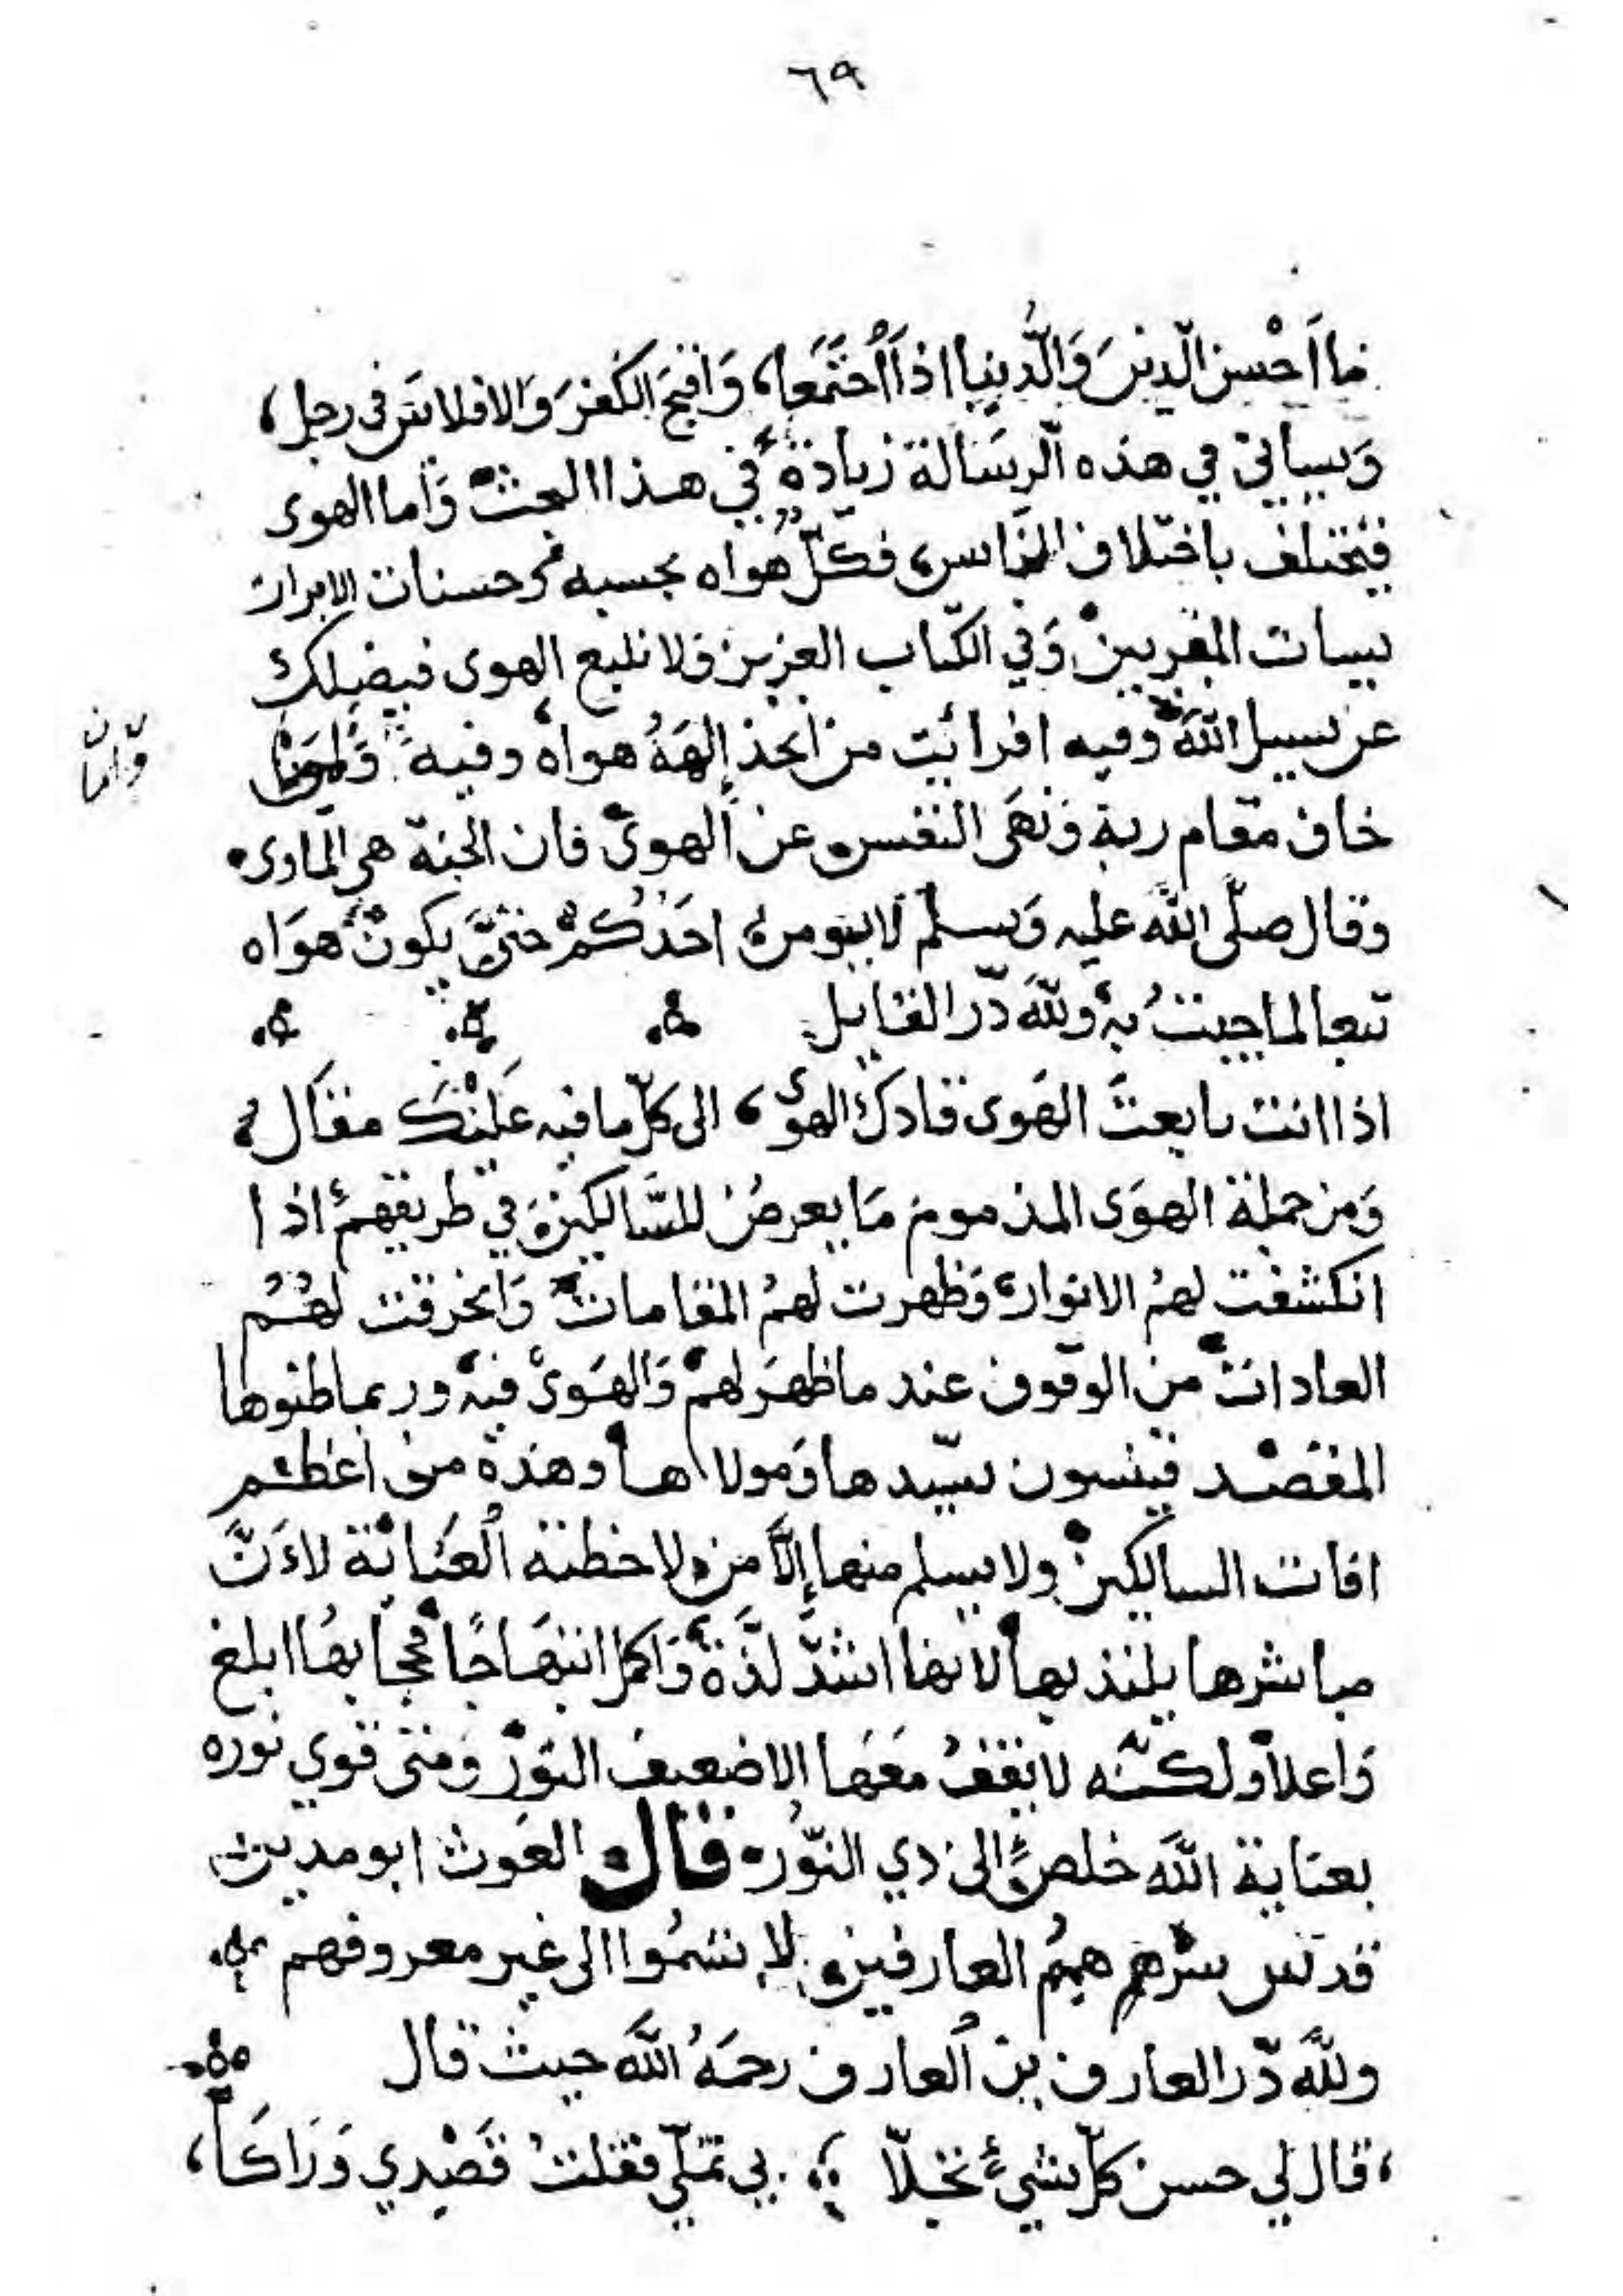 ٦٩
ما احسن الدين والدنيا اذا اجتمعا، واقبح الكفر والافلاس في رجل،
وسياتي في هذه الرسالة زيادة في هذا البحث واما الهوى
فيختلف باختلاف الناس فكل هواه بحسبه حسنات الابرار
سيات المقربين وفي الكتاب العزيز فلا تتبع الهوى فيضلك
عن سبيل الله وفيه افرائيت من اتخذ إلهه هواه وفيه
وامان
خاف مقام ربه ونهى النفس عن الهوى فان الجنة هي الماوى
وقال صلى الله عليه وسلم لا يومن احدكم حتى يكون هواه
تبعا لما جيت به ولله در القايل
اذا انت تابعت الهوى قادك الهوى، الى كل ما فيه عليك مقال
ومن جملة الهوى المذموم ما يعرض للسالكين في طريقهم اذا
انكشفت لهم الانوار وظهرت لهم المقامات وانخرقت لهم
العادات من الوقوف عند ما ظهر لهم والهوى فيه وربما ظنوها
المقصد فينسون سيدها ومولاها وهذه من اعظم
افات السالكين ولا يسلم منها إلا من لاحظته العناية لاءن
مباشرها يلتذ بها لانها اشد لذة واكمل ابتهاجا فحجابها ابلغ
واعلا ولكنه لا يقف معها الا ضعيف النور ومتى قوي نوره
بعناية الله خلص الى ذي النور قال الغوث ابو مدين
قدس سرهم همم العارفين لا تسموا الى غير معروفهم
ولله در العارف بن العارف رحمه الله حيث قال
،قال لي حسن كل شيء تجلا بي تملي فقلت قصدي وراكا،